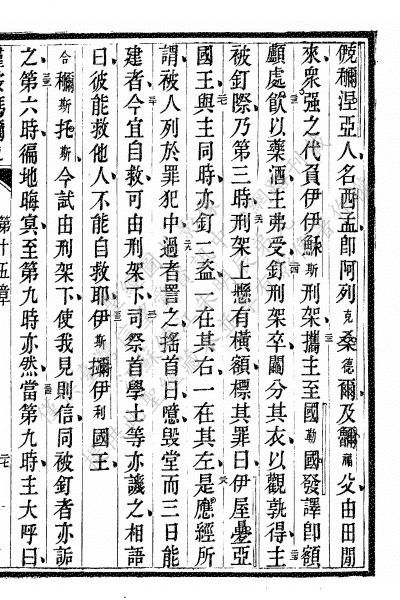 穪涅亞人名西孟卽阿列克桑德爾及福父由田間
來衆强之代負伊伊穌斯刑架攜主至國勒國發譯卽額
顱處飲以藥酒主弗受釘刑架卒鬮分其衣以觀孰得主
被釘際乃第三時刑架上懸有橫額標其罪曰伊屋疊亞
國王與主同時亦釘二盗一在其右一在其左是應經所
謂被人列於罪犯中過者詈之搖首曰噫毀堂而三日能
建者今宜自救可由刑架下司祭首學士等亦譏之相語
曰彼能救他人不能自救耶伊斯伊利國王
合穪斯托斯今試由刑架下使我見則信同被釘者亦詬
之第六時徧地晦冥至第九時亦然當第九時主大呼曰
第十五章